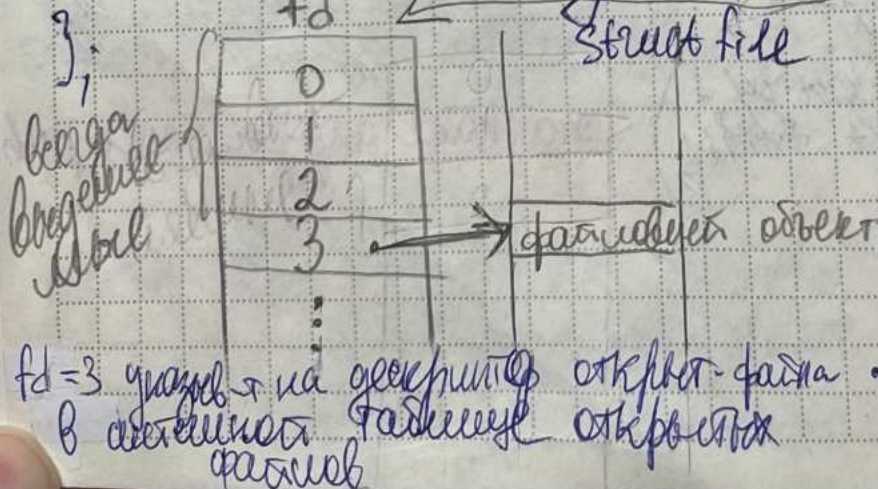 fd
};
struct file
0
всегда
выделяе
мые
1
2
3
файловый объект
fd=3 указыв-т на дескриптор открыт-файла
в системной таблице открытых
файлов